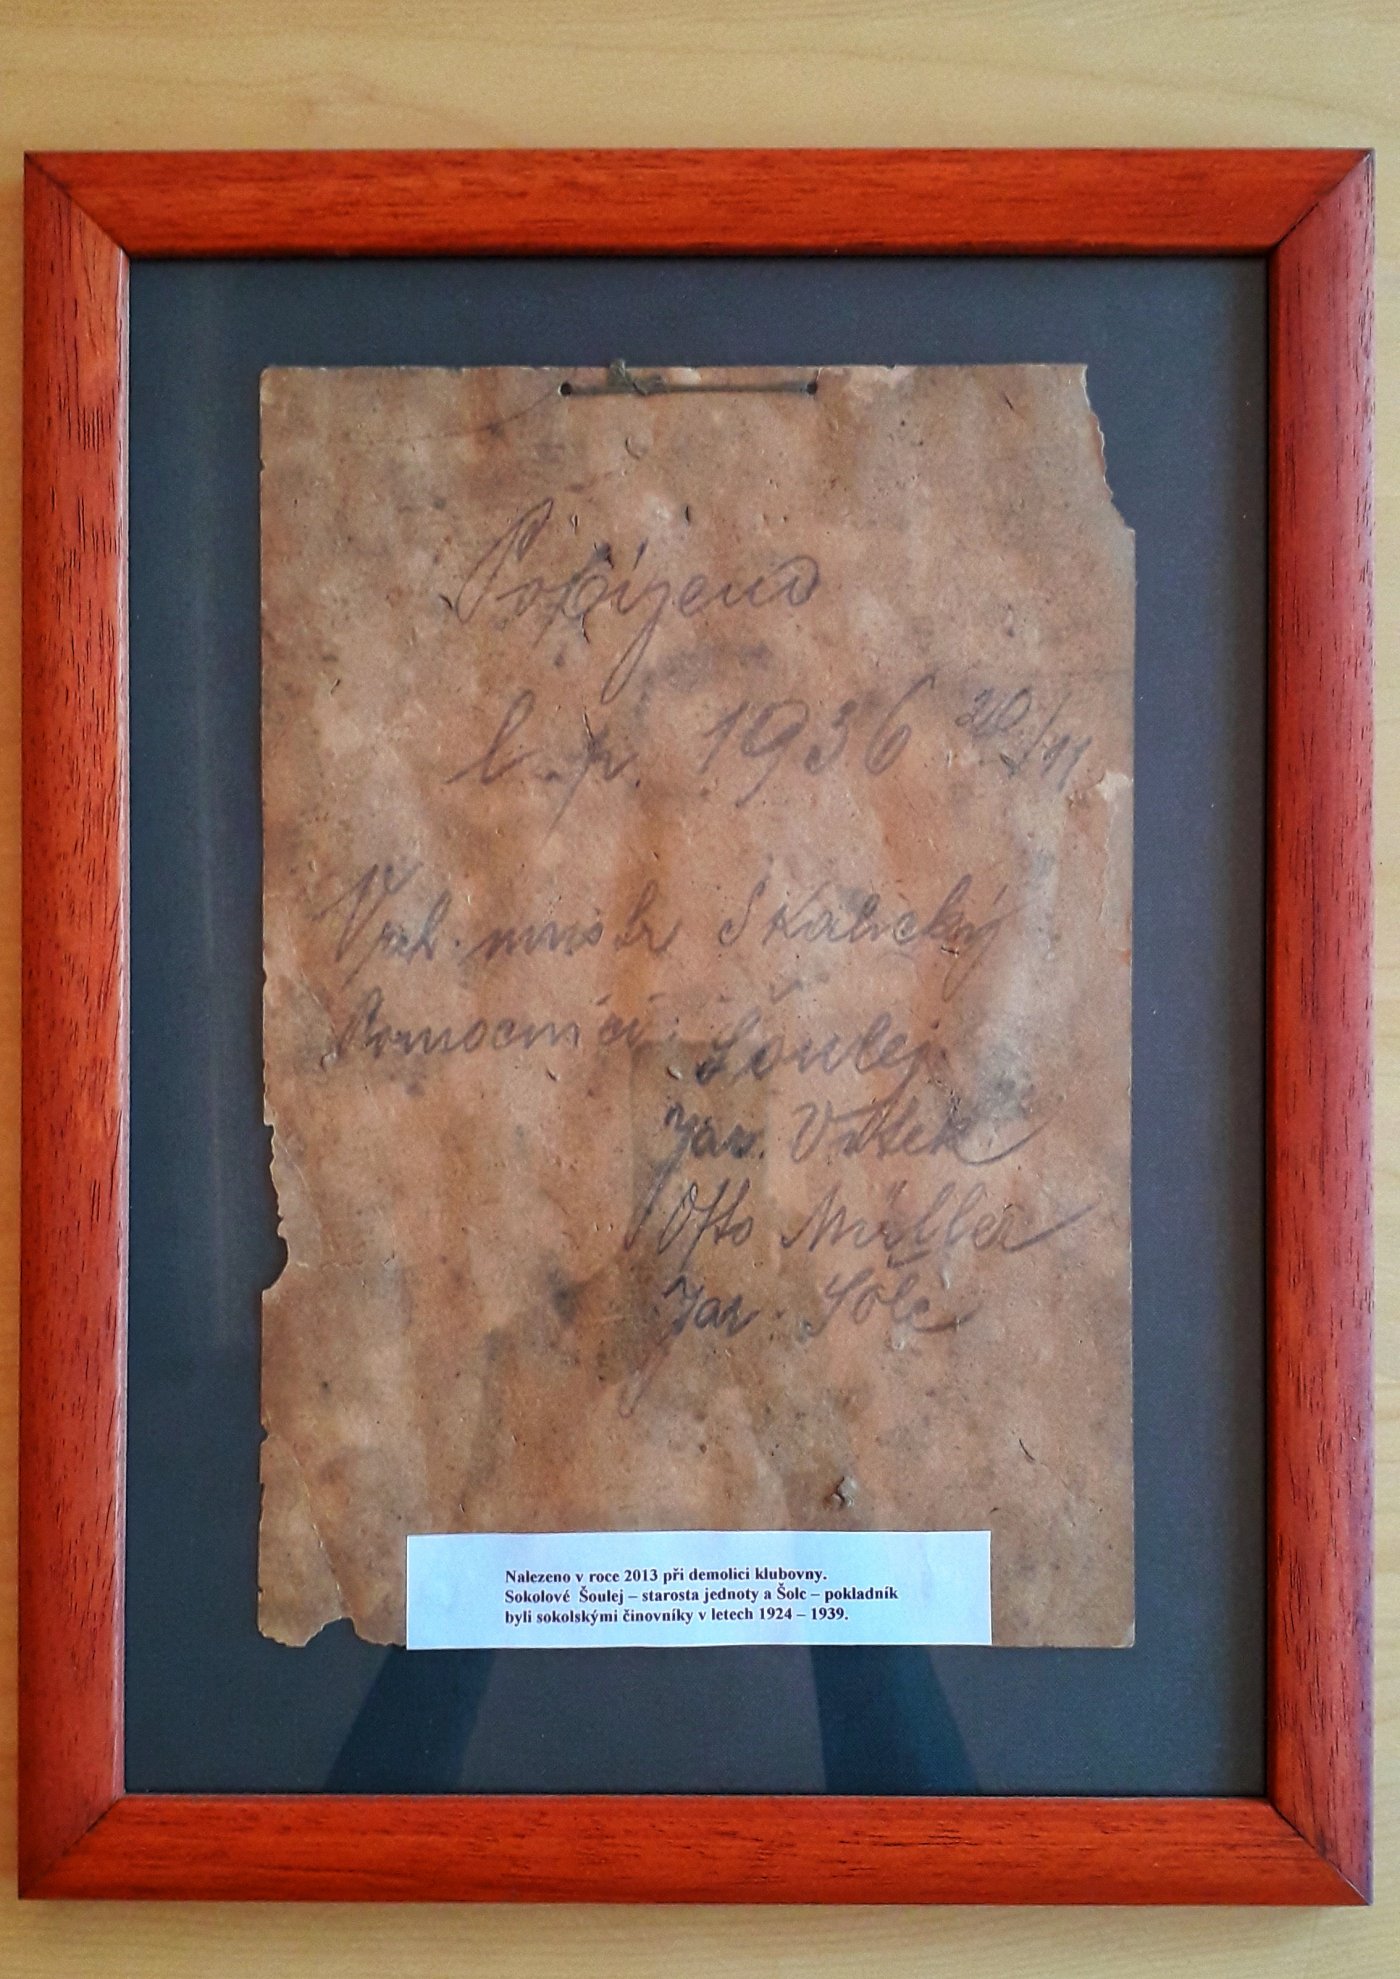 Pořízeno
l. p. 1936 20/11
Vrch. mistr Skalický
Pomocníci: Šoulej
Jar. Vítek
Otto Müller
Jar. Šolc
Nalezeno v roce 2013 při demolici klubovny.
Sokolové Šoulej – starosta jednoty a Šolc – pokladník
byli sokolskými činovníky v letech 1924 – 1939.